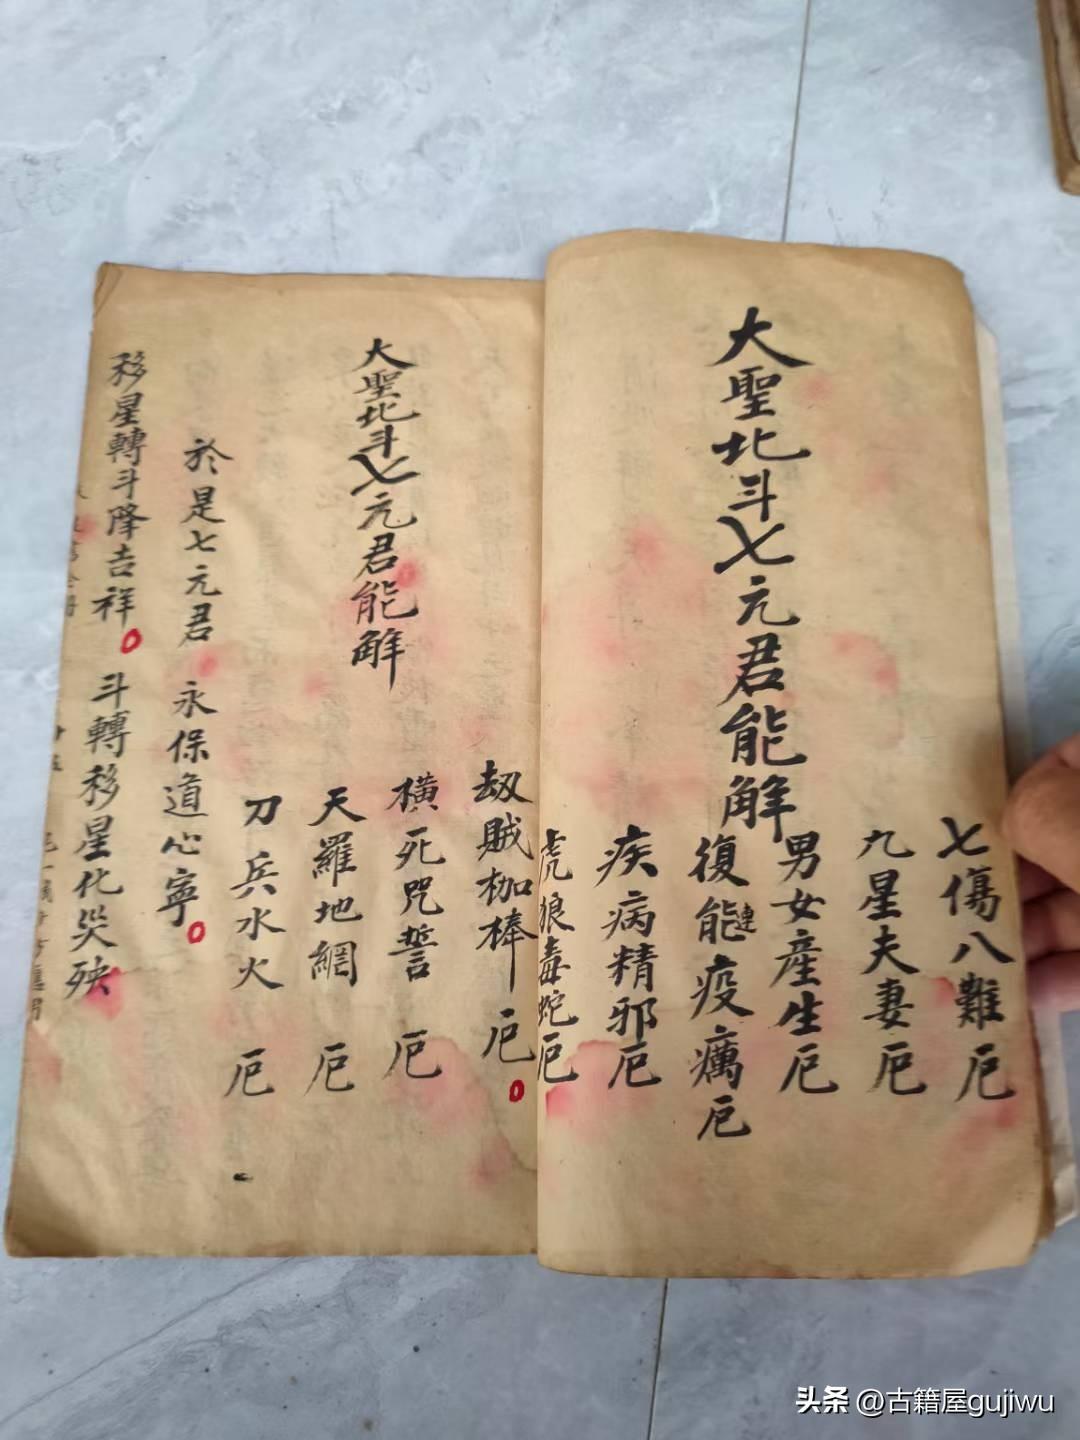 大聖北斗七元君能解
七傷八難厄
九星夫妻厄
男女產生厄
復能連疫癘厄
疾病精邪厄
虎狼毒蛇厄
劾賊枷棒厄
大聖北斗七元君能解
橫死咒誓厄
天羅地網厄
刀兵水火厄
於是七元君 永保道心寧
移星轉斗降吉祥 斗轉移星化災殃
头条 @古籍屋gujiwu